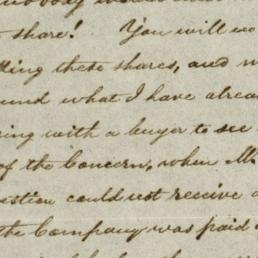 share! You will
these shares, and
what I have
with a buyer to see
of the Concern, when M
could not receive
the Company was paid